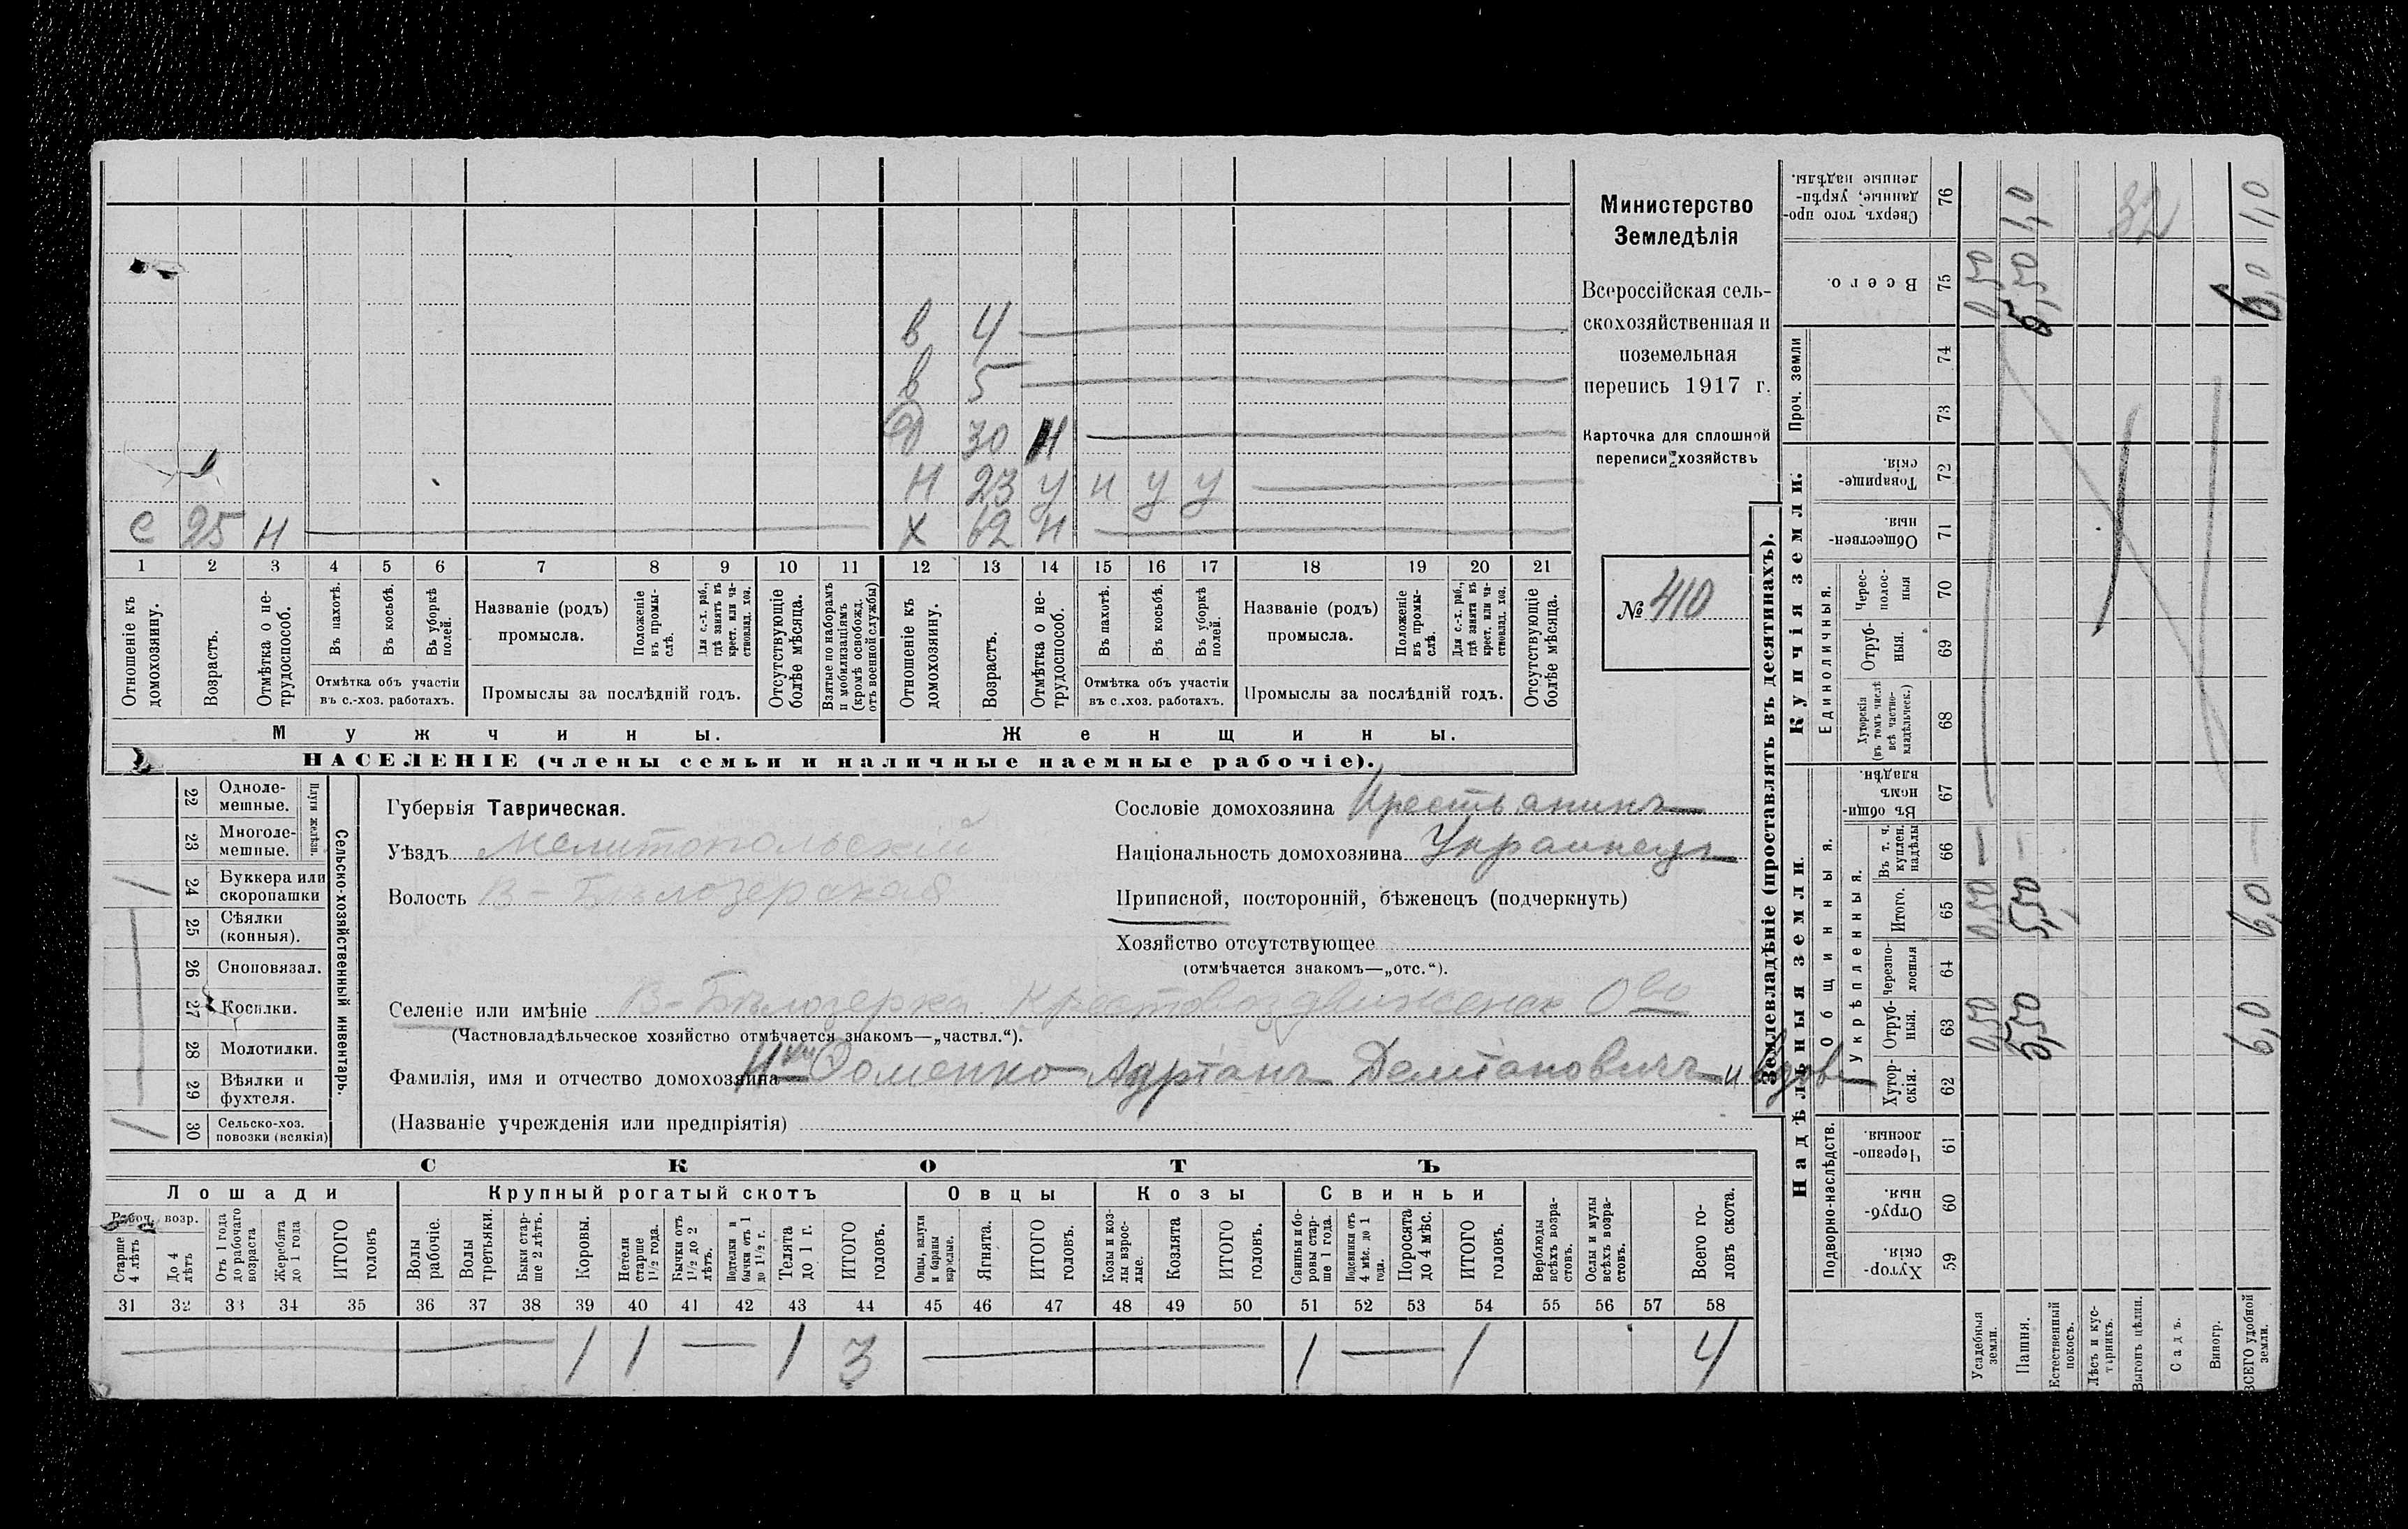 в 4
в 5
30 н
н 23 у н у у
е 25 н х 62 н
1 2 3 4 5 6 7 8 9 10 11 12 13 14 15 16 17 18 19 20 21
Отношеніе къ домохозяину.
Возрастъ.
Отмѣтка о не-
трудоспособ.
Въ пахотѣ.
Въ косьбѣ.
Въ уборкѣ полей.
Отмѣтка объ участіи
въ с.-хоз. работахъ.
Названіе (родъ)
промысла.
Положеніе
въ промы-
слѣ.
Для с.-х. раб.,
гдѣ занятъ въ
крест. или ча-
стновлад. хоз.
Промыслы за послѣдній годъ.
Отсутствующіе
болѣе мѣсяца.
Взятые по наборамъ
и мобилизаціямъ
(кромѣ освобожд.
отъ военной службы)
Отношеніе къ
домохозяину.
Возрастъ.
Отмѣтка о не-
трудоспособ.
Въ пахотѣ.
Въ косьбѣ.
Въ уборкѣ
полей.
Отмѣтка объ участіи
въ с.хоз. работахъ.
Названіе (родъ)
промысла.
Положеніе
въ промы-
слѣ.
Для с.-х. раб.,
гдѣ занята въ
крест. или ча-
стновлад. хоз.
Промыслы за послѣдній годъ.
Отсутствующіе
болѣе мѣсяца.
Мужчины.
Женщины.
НАСЕЛЕНІЕ (члены семьи и наличные наемные рабочіе).
Министерство
Земледѣлія
Всероссійская сель-
скохозяйственная и
поземельная
перепись 1917 г.
Карточка для сплошной
переписи хозяйствъ
№ 410
Сельско-хозяйственный инвентарь.
Плуги желѣзн.
22 Одноле-
мешные.
23 Многоле-
мешные.
24 Буккера или
скоропашки
25 Сѣялки
(конныя).
26 Сноповязал.
27 Косилки.
28 Молотилки.
29 Вѣялки и
фухтеля.
30 Сельско-хоз.
повозки (всякія)
Губернія Таврическая.
Уѣздъ Мелитопольскій
Волость В-Бѣлозерская
Сословіе домохозяина Крестьянинъ
Національность домохозяина Украинецъ
Приписной, посторонній, бѣженецъ (подчеркнуть)
Хозяйство отсутствующее
(отмѣчается знакомъ—„отс.“).
Селеніе или имѣніе В-Бѣлозерка Крестовоздвиженск О-во
(Частновладѣльческое хозяйство отмѣчается знакомъ—„частвл.“).
Фамилія, имя и отчество домохозяина Фоменко Адріанъ Даміановичъ и вдова
(Названіе учрежденія или предпріятія)
СКОТЪ
Лошади
Крупный рогатый скотъ
Овцы
Козы
Свиньи
Рабоч. возр.
Старше
4 лѣтъ
До 4
лѣтъ
Отъ 1 года
до рабочаго
возраста
Жеребята
до 1 года
ИТОГО
головъ
Волы
рабочіе.
Волы
третьяки.
Быки стар-
ше 2 лѣтъ.
Коровы.
Нетели
старше
1½ года.
Бычки отъ
1½ до 2
лѣтъ.
Подтелки и
бычки отъ 1
до 1½ г.
Телята
до 1 г.
ИТОГО
головъ.
Овцы, валухи
и бараны
взрослые.
Ягнята.
ИТОГО
головъ.
Козы и коз-
лы взрос-
лые.
Козлята
ИТОГО
головъ.
Свиньи и бо-
ровы стар-
ше 1 года.
Подсвинки отъ
4 мѣс. до 1
года.
Поросята
до 4 мѣс.
ИТОГО
головъ.
Верблюды
всѣхъ возра-
стовъ.
Ослы и мулы
всѣхъ возра-
стовъ.
Всего го-
ловъ скота.
31 32 33 34 35 36 37 38 39 40 41 42 43 44 45 46 47 48 49 50 51 52 53 54 55 56 57 58
1 1 — 1 3 — 1 — 1 4
Землевладѣніе (проставлять въ десятинахъ).
Надѣльныя земли.
Купчія земли.
Проч. земли
Подворно-наслѣдств.
Общинныя.
Укрѣпленныя.
Единоличныя.
Сверхъ того про-
данные, укрѣп-
ленные надѣлы. 76
Всего. 75
74
73
Товарище-
скія. 72
Обществен-
ныя. 71
Черес-
полос-
ныя 70
Отруб-
ныя. 69
Хуторскія
(въ томъ числѣ
всѣ частно-
владѣльческ.) 68
Въ общин-
номъ
владѣн. 67
Въ т. ч.
куплен.
надѣлы 66
Итого. 65
Черезпо-
лосныя 64
Отруб-
ныя. 63
Хутор-
скія. 62
Черезпо-
лосныя. 61
Отруб-
ныя. 60
Хутор-
скія. 59
Усадебныя
земли.
Пашня.
Естественный
покосъ.
Лѣсъ и кус-
тарникъ.
Выгонъ цѣлин.
Садъ.
Виногр.
ВСЕГО удобной
земли.
0,50 0,50 — 0,50
5,50 5,50 — 5,50 1,0
32
6,0 6,0 — 6,0 1,0